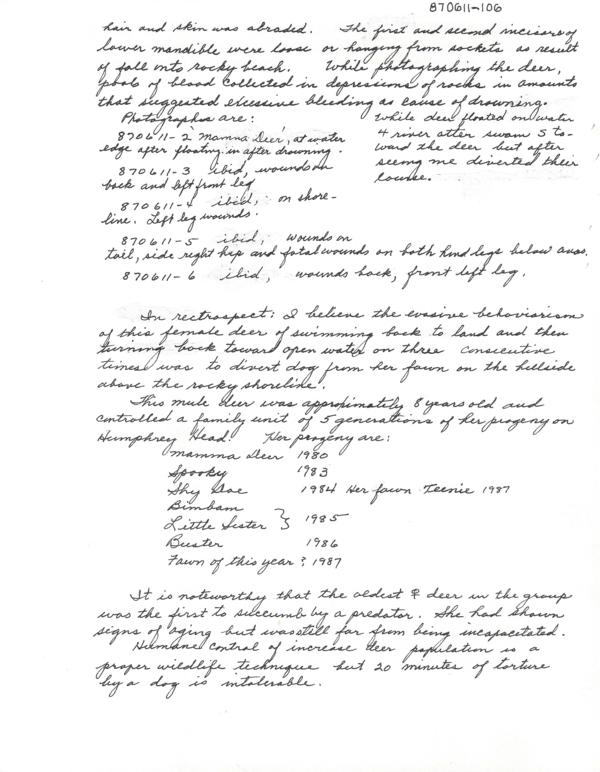 870611-106
hair and skin was abraded. The first and second incisors of
lower mandible were loose or hanging from sockets as result
of fall onto rocky beach. While photographing the deer,
pools of blood collected in depressions of rocks in amounts
that suggested excessive bleeding as cause of drowning.
Photographs are:
870611-2 Mamma Deer, at water
edge after floating in after drowning.
870611-3 ibid, wounds on
back and left front leg
870611-4 ibid, on shore-
line. Left leg wounds.
While deer floated on water
4 river otter swam 5 to-
ward the deer but after
seeing me diverted their
course.
870611-5 ibid, wounds on
tail, side right hip and fatal wounds on both hind legs below anus.
870611-6 ibid, wounds back, front left leg.
In rectrospect: I believe the evasive behaviorism
of this female deer of swimming back to land and then
turning back toward open water on three consecutive
times was to divert dog from her fawn on the hillside
above the rocky shoreline.
This mule deer was approximately 8 years old and
controlled a family unit of 5 generations of her progeny on
Humphrey Head. Her progeny are:
Mamma Deer 1980
Spooky 1983
Shy Doe 1984 Her fawn Teenie 1987
Bimbam
Little Sister } 1985
Buster 1986
Fawn of this year ? 1987
It is noteworthy that the oldest ♀ deer in the group
was the first to succumb by a predator. She had shown
signs of aging but was still far from being incapacitated.
Humane control of increase deer population is a
proper wildlife technique but 20 minutes of torture
by a dog is intolerable.